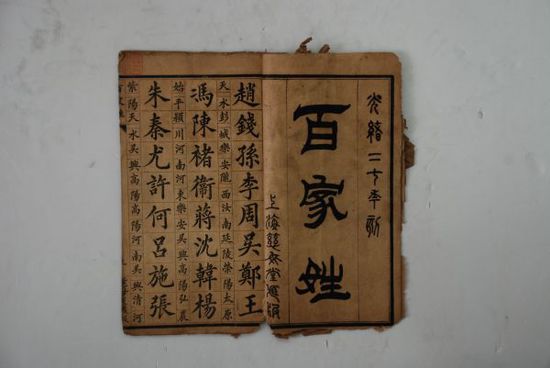 光緒二
年
百家姓
上海
趙錢孫李周吳鄭王
天水彭城樂安隴西汝南延陵滎陽太原
馮陳褚衛蔣沈韓楊
始平潁川河南河東樂安吳興高陽弘農
朱秦尤許何呂施張
紫陽天水吳興高陽高陽河南吳興清河